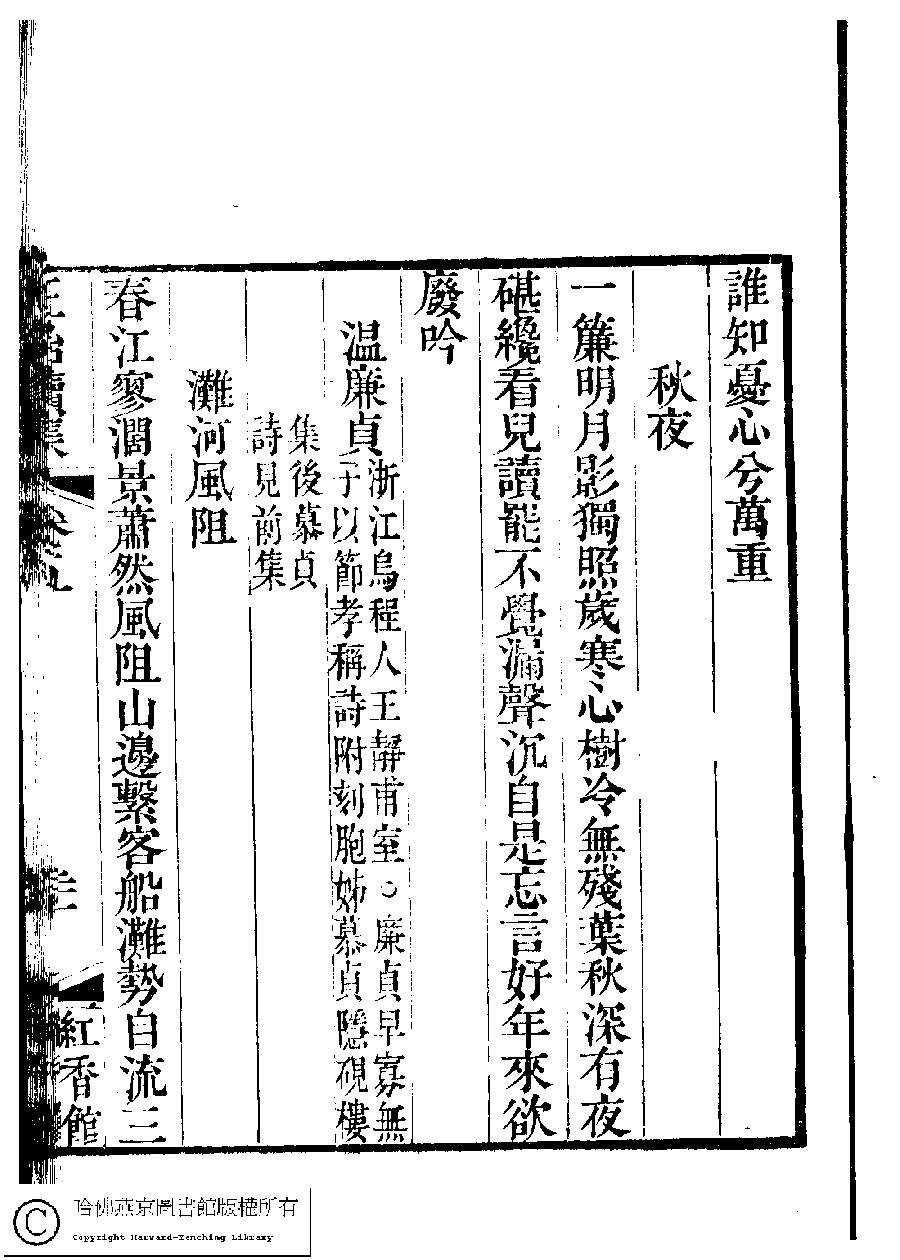 誰知憂心兮萬重
秋夜
一簾明月影獨照歲寒心樹冷無殘葉秋深有夜
碪纔看兒讀罷不覺漏聲沉自是忘言好年來欲
廢吟
温廉貞
浙江烏程人王靜甫室○廉貞早寡無
子以節孝稱詩附刻胞姊慕貞隱硯樓
集後慕貞
詩見前集
灘河風阻
春江寥濶景蕭然風阻山邊繫客船灘勢自流三
紅香館
哈佛燕京圖書館版權所有
Copyright Harvard-Yenching Library